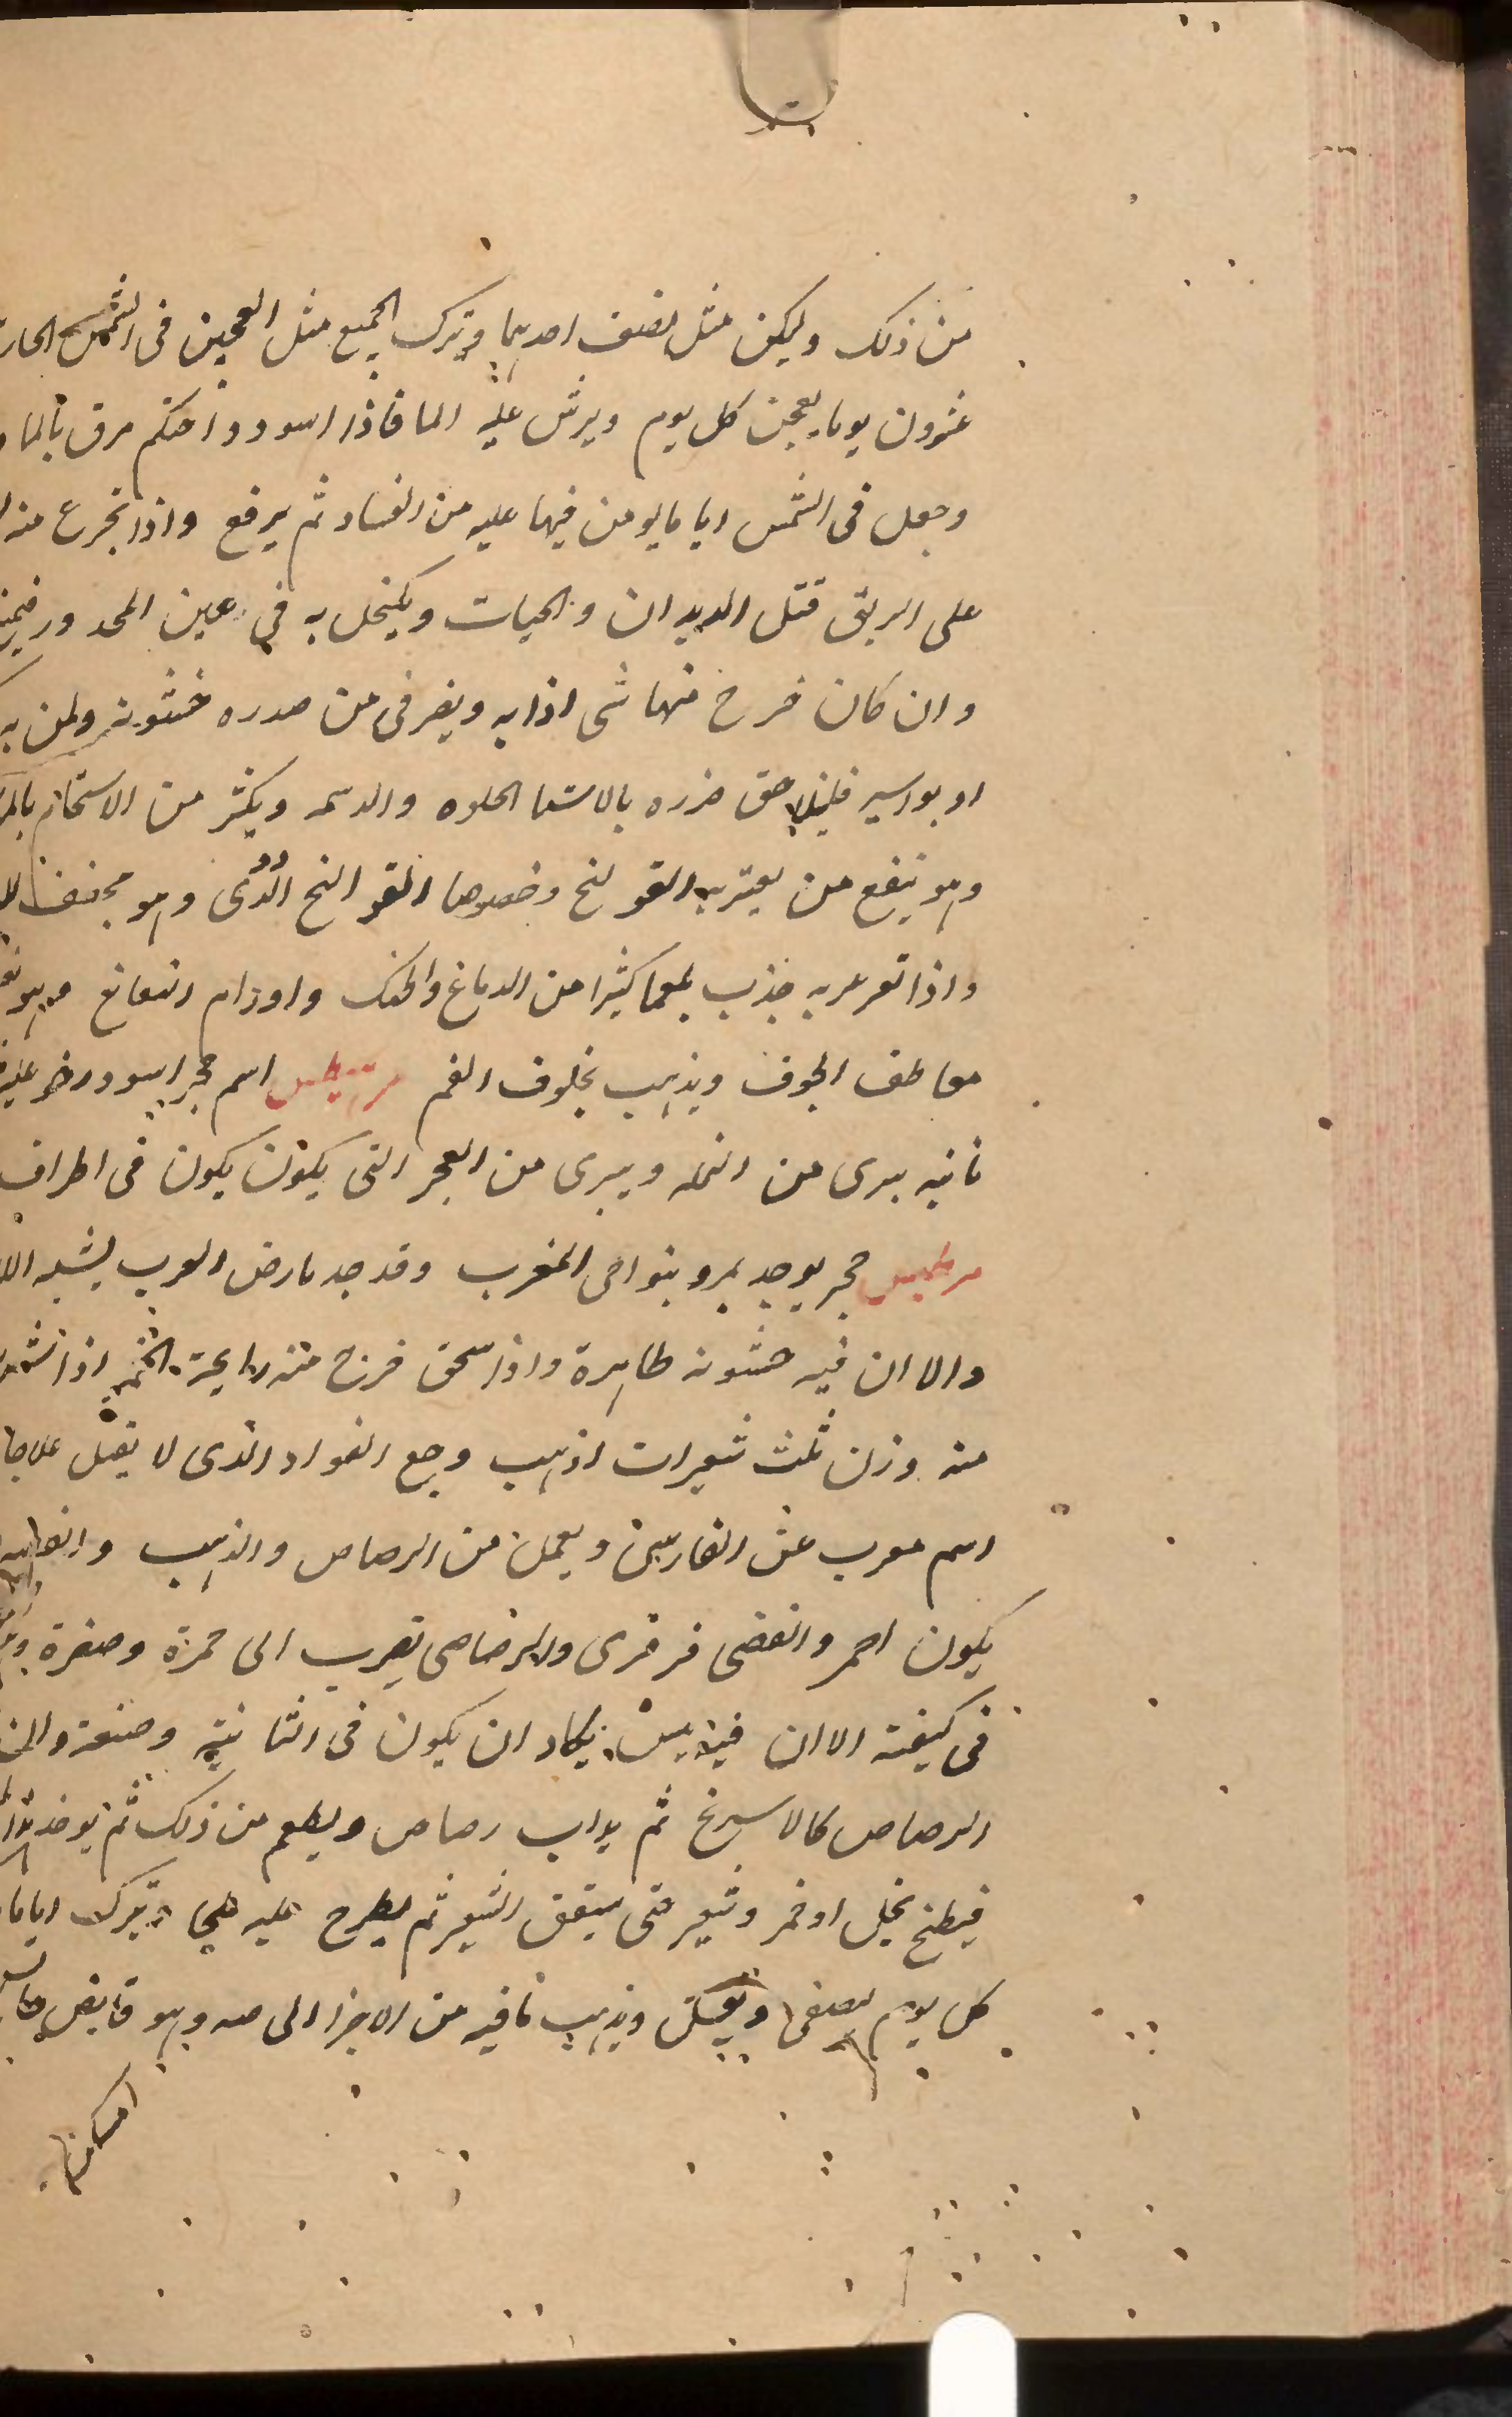 من ذلك وليكن مثل نصف احديهما ويترك الجميع مثل العجين فى الشمس الحار
عشرون يوما يعجن كل يوم ويرش عليه الما فاذا اسود واحتكم مرق بالما
وجعل فى الشمس اياما يومن فيها عليه من الفساد ثم يرفع واذا تجرع منه
على الريق قتل الديدان والحيات ويكتحل به فى عين
وان كان خرج منها شى اذابه ويضر فى من صدره خشونة ولمن به
او بواسير فليلاحق ضرره بالاشيا الحلوه والدسمه ويكثر من الاستحمام
وهو ينفع من يعتريه القولنج وخصوصا القوالنج الدودى وهو مجفف
واذا تغرغر به جذب بلغما كثيرا من الدماغ والحنك واورام النغانغ
معاطف الجوف ويذهب بخلوف الفم مرتيطس اسم حجر اسود رخو عليه
فانيه يبرى من النمله ويبرى من العجر التى يكون يكون فى اطراف
مرطيس حجر يوجد بمرو بنواحى المغرب وقد جد بارض العرب يشبه
والا ان فيه خشونه ظاهرة واذا سحق خرج منه رايحة الخمر اذا شرب
منه وزن ثلث شعيرات اذهب وجع الفواد الذى لا يقبل علاجا
اسم معرب عن الفارسى ويعمل من الرصاص والذهب والفضه
يكون احمر والفضى فرفرى والرصاصى يقرب الى حمرة وصفرة
فى كيفته الا ان فيه يبس يكاد ان يكون فى الثانيه وصنعة
الرصاص كالاسرنج ثم يداب رصاص ويطعم من ذلك ثم يوخذ
فيطبخ بخل او خمر وشعير حتى يتفق الشعير ثم يطرح عليه ملح ويترك اياما
كل يوم يصفى ويغسل ويذهب مافيه من الاجزا وهو قابض